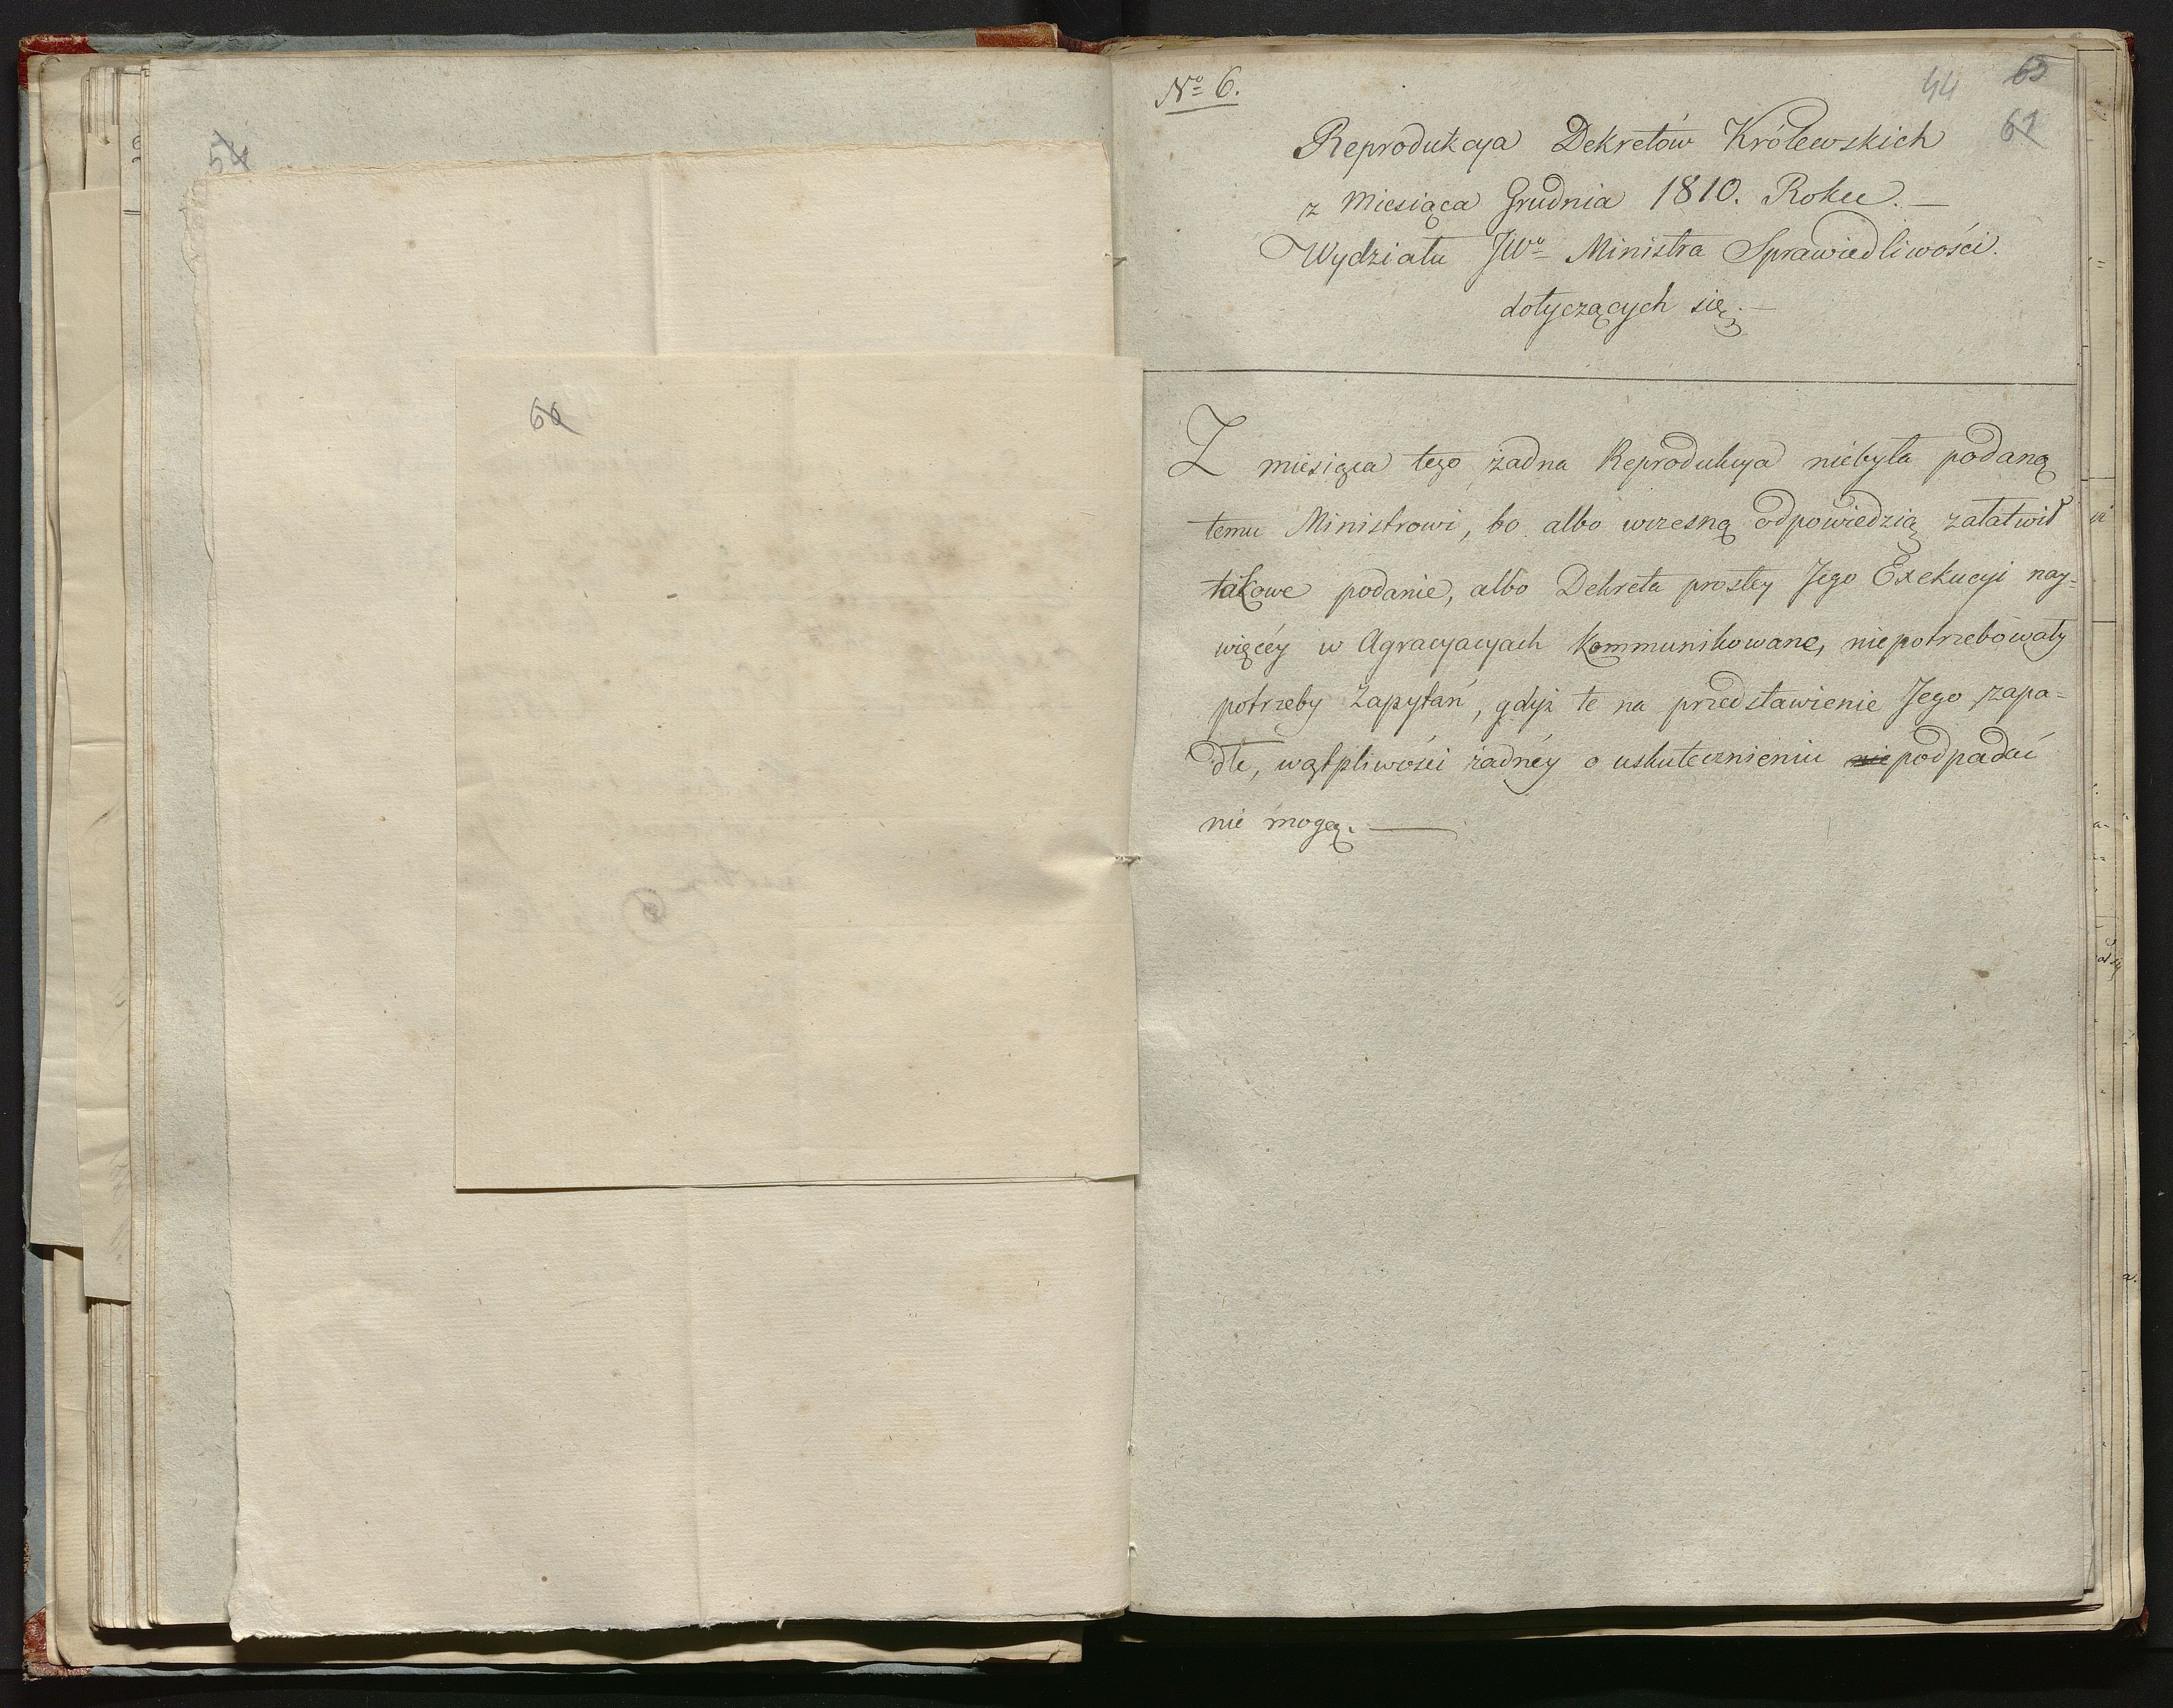 54
60
Nº 6.
44 65
61
Reprodukcya Dekretów Królewskich
z Miesiąca Grudnia 1810. Roku. —
Wydziału JWº Ministra Sprawiedliwości.
dotyczących się. —
Z miesiąca tego żadna Reprodukcya niebyła podaną
temu Ministrowi, bo albo wczesną odpowiedzią załatwił
takowe podanie, albo Dekreta prostey Jego Exekucyi nay-
więcéy w Agracyacyach kommunikowane, niepotrzebowały
potrzeby Zapytań, gdyż te na przedstawienie Jego zapa-
dłe, wątpliwości żadnéy o uskutecznieniu nie podpadać
nie mogą. —